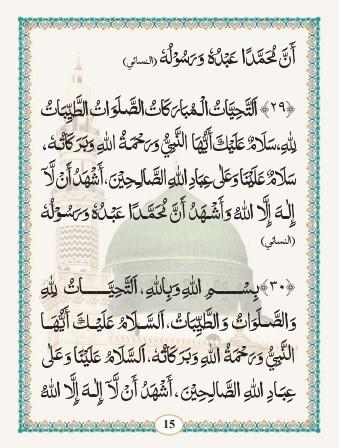 أَنَّ مُحَمَّدًا عَبْدُهٗ وَرَسُوْلُهٗ (النسائي)
﴿٢٩﴾ اَلتَّحِيَّاتُ الْمُبَارَكَاتُ الصَّلَوَاتُ الطَّيِّبَاتُ
لِلّٰهِ، سَلَامٌ عَلَيْكَ أَيُّهَا النَّبِيُّ وَرَحْمَةُ اللهِ وَبَرَكَاتُهٗ،
سَلَامٌ عَلَيْنَا وَعَلٰى عِبَادِ اللهِ الصَّالِحِيْنَ، أَشْهَدُ أَنْ لَّآ
إِلٰهَ إِلَّا اللهُ وَأَشْهَدُ أَنَّ مُحَمَّدًا عَبْدُهٗ وَرَسُوْلُهٗ
(النسائي)
﴿٣٠﴾ بِسْمِ اللهِ وَبِاللهِ، اَلتَّحِيَّاتُ لِلّٰهِ
وَالصَّلَوَاتُ وَالطَّيِّبَاتُ، اَلسَّلَامُ عَلَيْكَ أَيُّهَا
النَّبِيُّ وَرَحْمَةُ اللهِ وَبَرَكَاتُهٗ، اَلسَّلَامُ عَلَيْنَا وَعَلٰى
عِبَادِ اللهِ الصَّالِحِيْنَ، أَشْهَدُ أَنْ لَّآ إِلٰهَ إِلَّا اللهُ
15